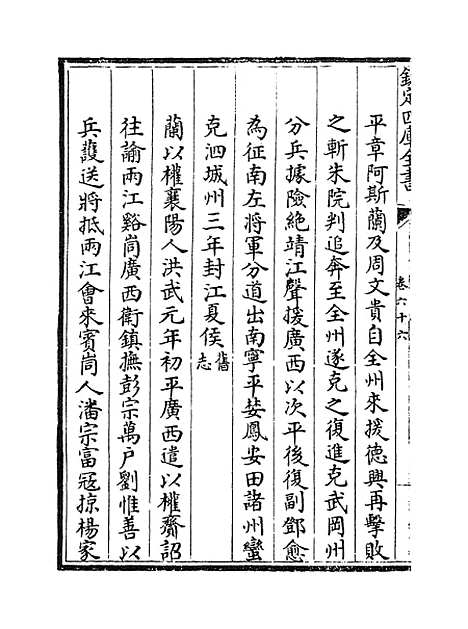 欽定四庫全書
卷六十六
平章阿斯蘭及周文貴自全州來援徳興再擊敗
之斬朱院判追奔至全州遂克之復進克武岡州
分兵據險絶靖江聲援廣西以次平後復副鄧愈
為征南左將軍分道出南寧平婪鳳安田諸州蠻
克泗城州三年封江夏侯舊志
蘭以權襄陽人洪武元年初平廣西遣以權齎詔
往諭兩江谿峝廣西衛鎮撫彭宗萬户劉惟善以
兵䕶送將抵兩江會來賓峝人潘宗富冦掠楊家